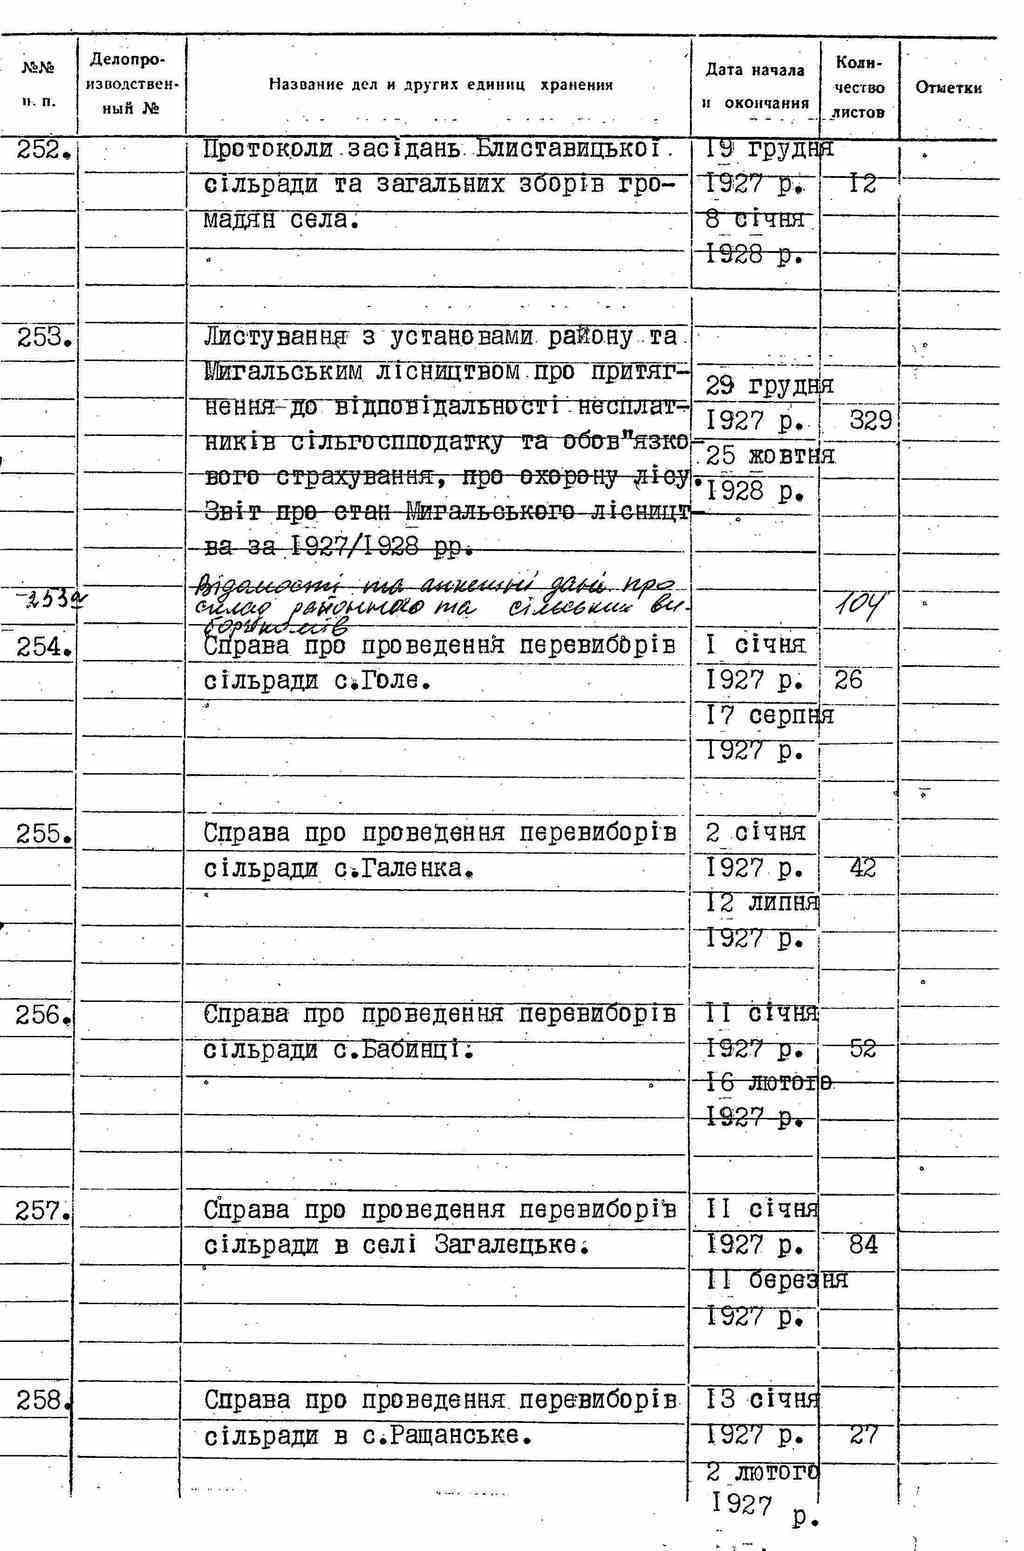 №№ п. п.
Делопро-
изводствен-
ный №
Название дел и других единиц хранения
Дата начала
и окончания
Коли-
чество
листов
Отметки
252. Протоколи засідань Блиставицької 19 грудня
сільради та загальних зборів гро- 1927 р. 12
мадян села. 8 січня
1928 р.
253. Листування з установами району та
Мигальським лісництвом про притяг- 29 грудня
нення до відповідальності несплат- 1927 р. 329
ників сільгоспподатку та обов"язко- 25 жовтня
вого страхування, про охорону лісу. 1928 р.
Звіт про стан Мигальського лісницт-
ва за 1927/1928 рр.
253а Відомості та анкетні дані про
склад районного та сільських ви- 104
борчкомів
254. Справа про проведення перевиборів I січня
сільради с.Голе. 1927 р. 26
17 серпня
1927 р.
255. Справа про проведення перевиборів 2 січня
сільради с.Галенка. 1927 р. 42
12 липня
1927 р.
256. Справа про проведення перевиборів II січня
сільради с.Бабинці. 1927 р. 52
16 лютого
1927 р.
257. Справа про проведення перевиборів II січня
сільради в селі Загалецьке. 1927 р. 84
II березня
1927 р.
258. Справа про проведення перевиборів 13 січня
сільради в с.Ращанське. 1927 р. 27
2 лютого
1927 р.